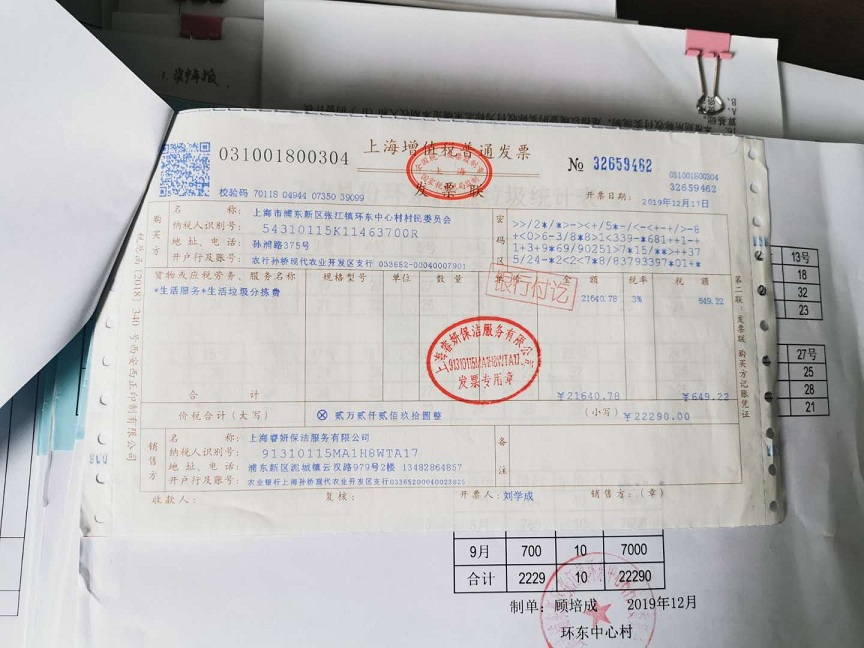 031001800304
上海增值税普通发票
发票联
№ 32659462
031001800304
32659462
校验码 70118 04944 07350 39099
开票日期：2019年12月17日
购买方
名 称：上海市浦东新区张江镇环东中心村村民委员会
纳税人识别号：54310115K11463700R
地 址、电 话：孙湘路375号
开户行及账号：农行孙桥现代农业开发区支行 033652-00040007901
密码区
>>/2*/*>-><+/5*-/<-<+-+/>-8
+<0>6-3/8*8>1<339-*681++1-+
1+3+9*69/90251>7*15/**>++37
5/24-*2<2<7*8/83793397*01+*
货物或应税劳务、服务名称 规格型号 单位 数量 单价 金额 税率 税额
*生活服务*生活垃圾分拣费 21640.78 3% 649.22
银行付讫
上海睿妍保洁服务有限公司
91310115MA1H8WTA17
发票专用章
合 计 ￥21640.78 ￥649.22
价税合计（大写） ⊗ 贰万贰仟贰佰玖拾圆整 （小写）￥22290.00
销售方
名 称：上海睿妍保洁服务有限公司
纳税人识别号：91310115MA1H8WTA17
地 址、电 话：浦东新区泥城镇云汉路979号2楼 13482864857
开户行及账号：农业银行上海孙桥现代农业开发区支行03365200040023825
备注
收款人： 复核： 开票人：刘学成 销售方：（章）
第二联：发票联 购买方记账凭证
13号
18
32
23
27号
25
28
21
9月 700 10 7000
合计 2229 10 22290
制单：顾培成 2019年12月
环东中心村